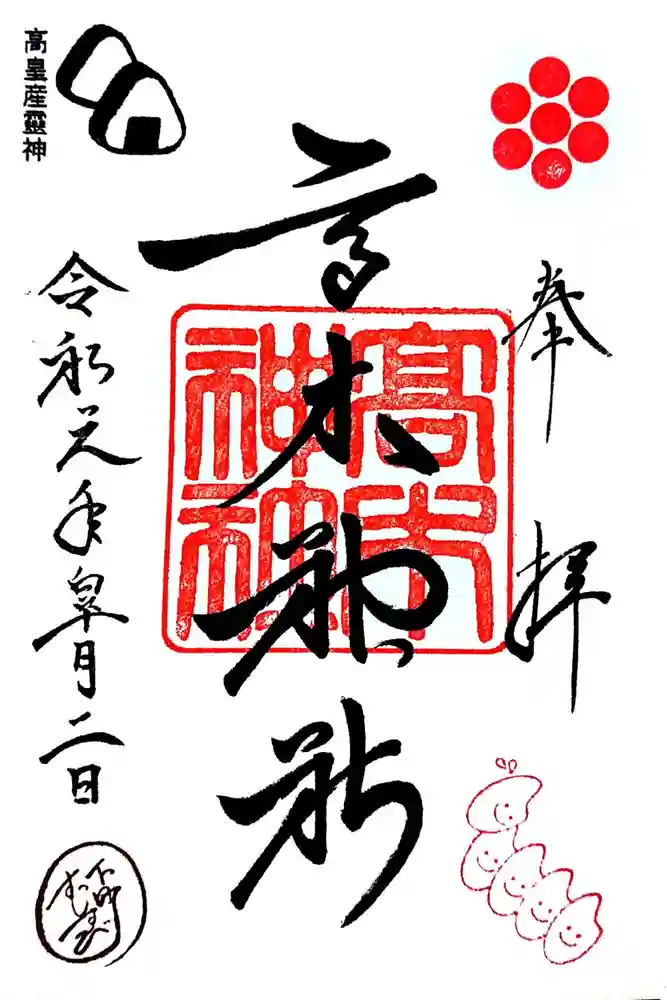 奉拝
高木神社
高木
神社
高皇産靈神
令和元年皐月二日